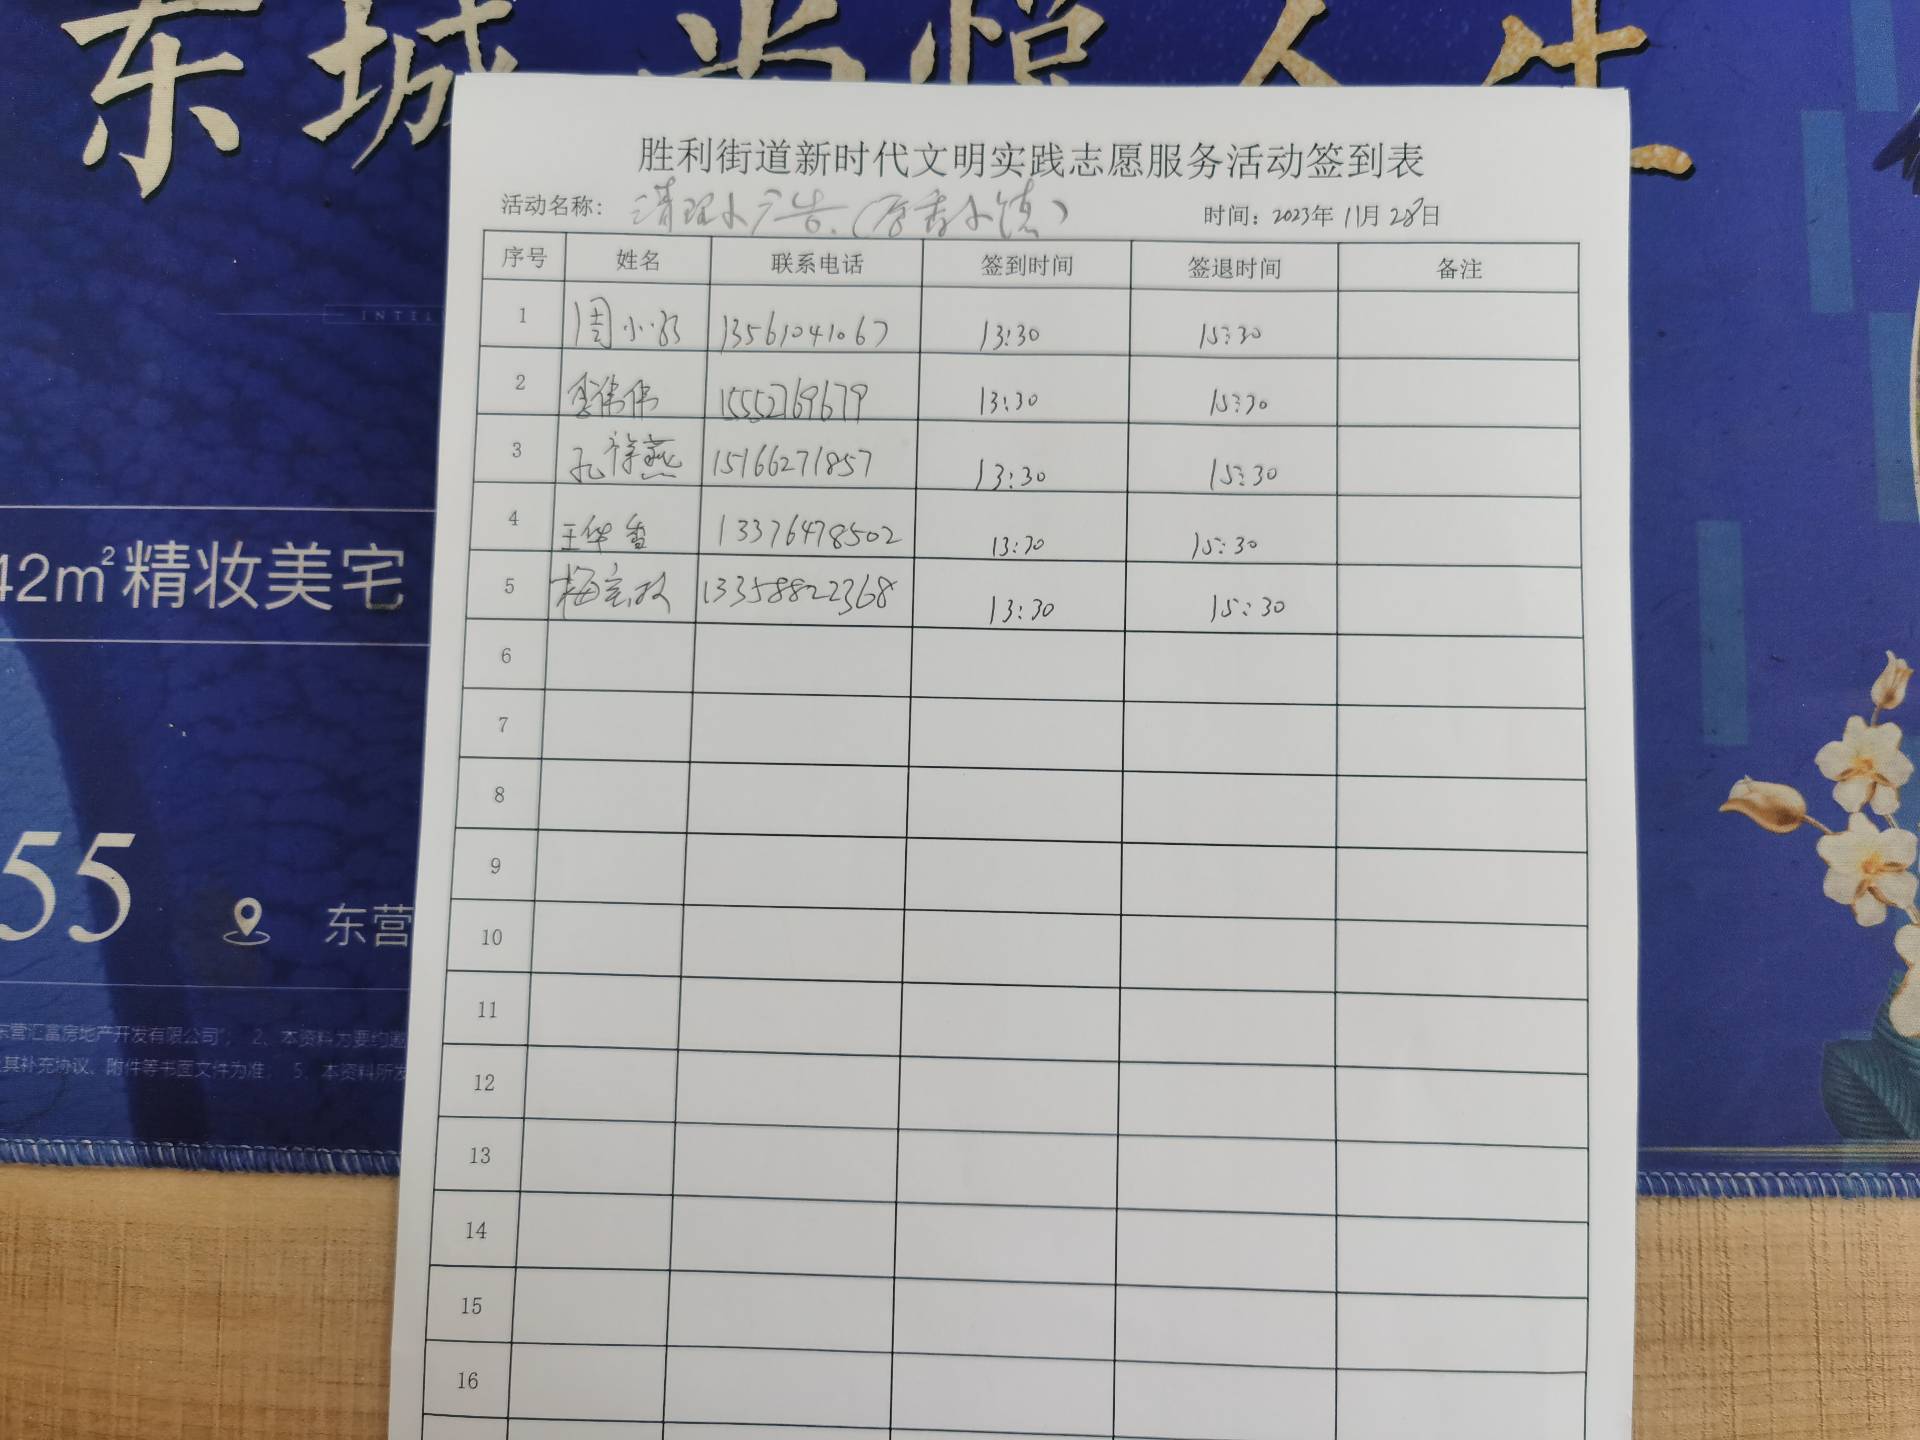 东城 尚悦人生
胜利街道新时代文明实践志愿服务活动签到表
活动名称: 清理小广告.(香小镇) 时间: 2023年 11月 28日
序号 姓名 联系电话 签到时间 签退时间 备注
1 周小 13561041067 13:30 15:30
2 李伟伟 15552769679 13:30 15:30
3 孔祥燕 15166271857 13:30 15:30
4 王华香 13376478502 13:30 15:30
5 梅 13358822368 13:30 15:30
6
7
8
9
10
11
12
13
14
15
16
INTEL
42m²精妆美宅
55
东营
东营汇富房地产开发有限公司"; 2、本资料为要约邀
其补充协议、附件等书面文件为准; 5、本资料所发